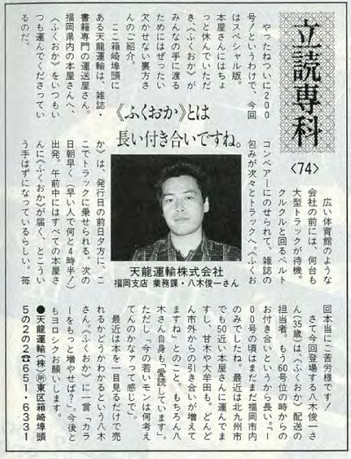 立読専科
〈74〉
《ふくおか》とは
長い付き合いですね。
やったねついに200
号！というわけで、今回
はスペシャル版。
本屋さんにはちょ
っと休んでいただ
き、《ふくおか》が
みんなの手に渡る
ためにはぜったい
欠かせない裏方さ
んのご紹介。
ここ箱崎埠頭に
ある天龍運輸は、雑誌・
書籍専門の運送屋さん。
福岡県内の本屋さんへ、
《ふくおか》をいつもい
つも運んでくださってい
るのだ。
広い体育館のような
会社の前には、何台も
大型トラックが待機。
クルクルと回るベルト
コンベアーにのせられて、雑誌の
包みが次々とトラックへ。《ふくお
か》は、発行日の前日夕方に、こ
こでトラックに乗せられる。次の
日朝早く（早い人で何と4時半）
出発。午前中にはすべての本屋さ
んに《ふくおか》が届く、とこうい
う手はずになっているらしい。毎
天龍運輸株式会社
福岡支店 業務課・八木俊一さん
回本当にご苦労様です！
さて今回登場する八木俊一さ
ん（35歳）は《ふくおか》配送の
担当者。もう60号位の時からの
お付き合いというから長い。「1
00号の頃はまだまだ福岡市内
のみでいたね。最近は北九州市
でも50近い本屋さんに運んでま
すし、甘木や大牟田も。どんど
ん市外からの引き合いが増えて
ますね」とのこと。もちろん八
木さん自身も「愛読しています」。
ただし「今の若いモンは何考え
てんのかなァって感じで」。
最近は本を一目見るだけで売
れるかどうかわかるという八木
さん。《ふくおか》に一言「カラ
ーをもっと増やせば？」。今後と
もヨロシクお願しします。
●天龍運輸（株）㊟東区箱崎埠頭
5の2の2☎651・6331